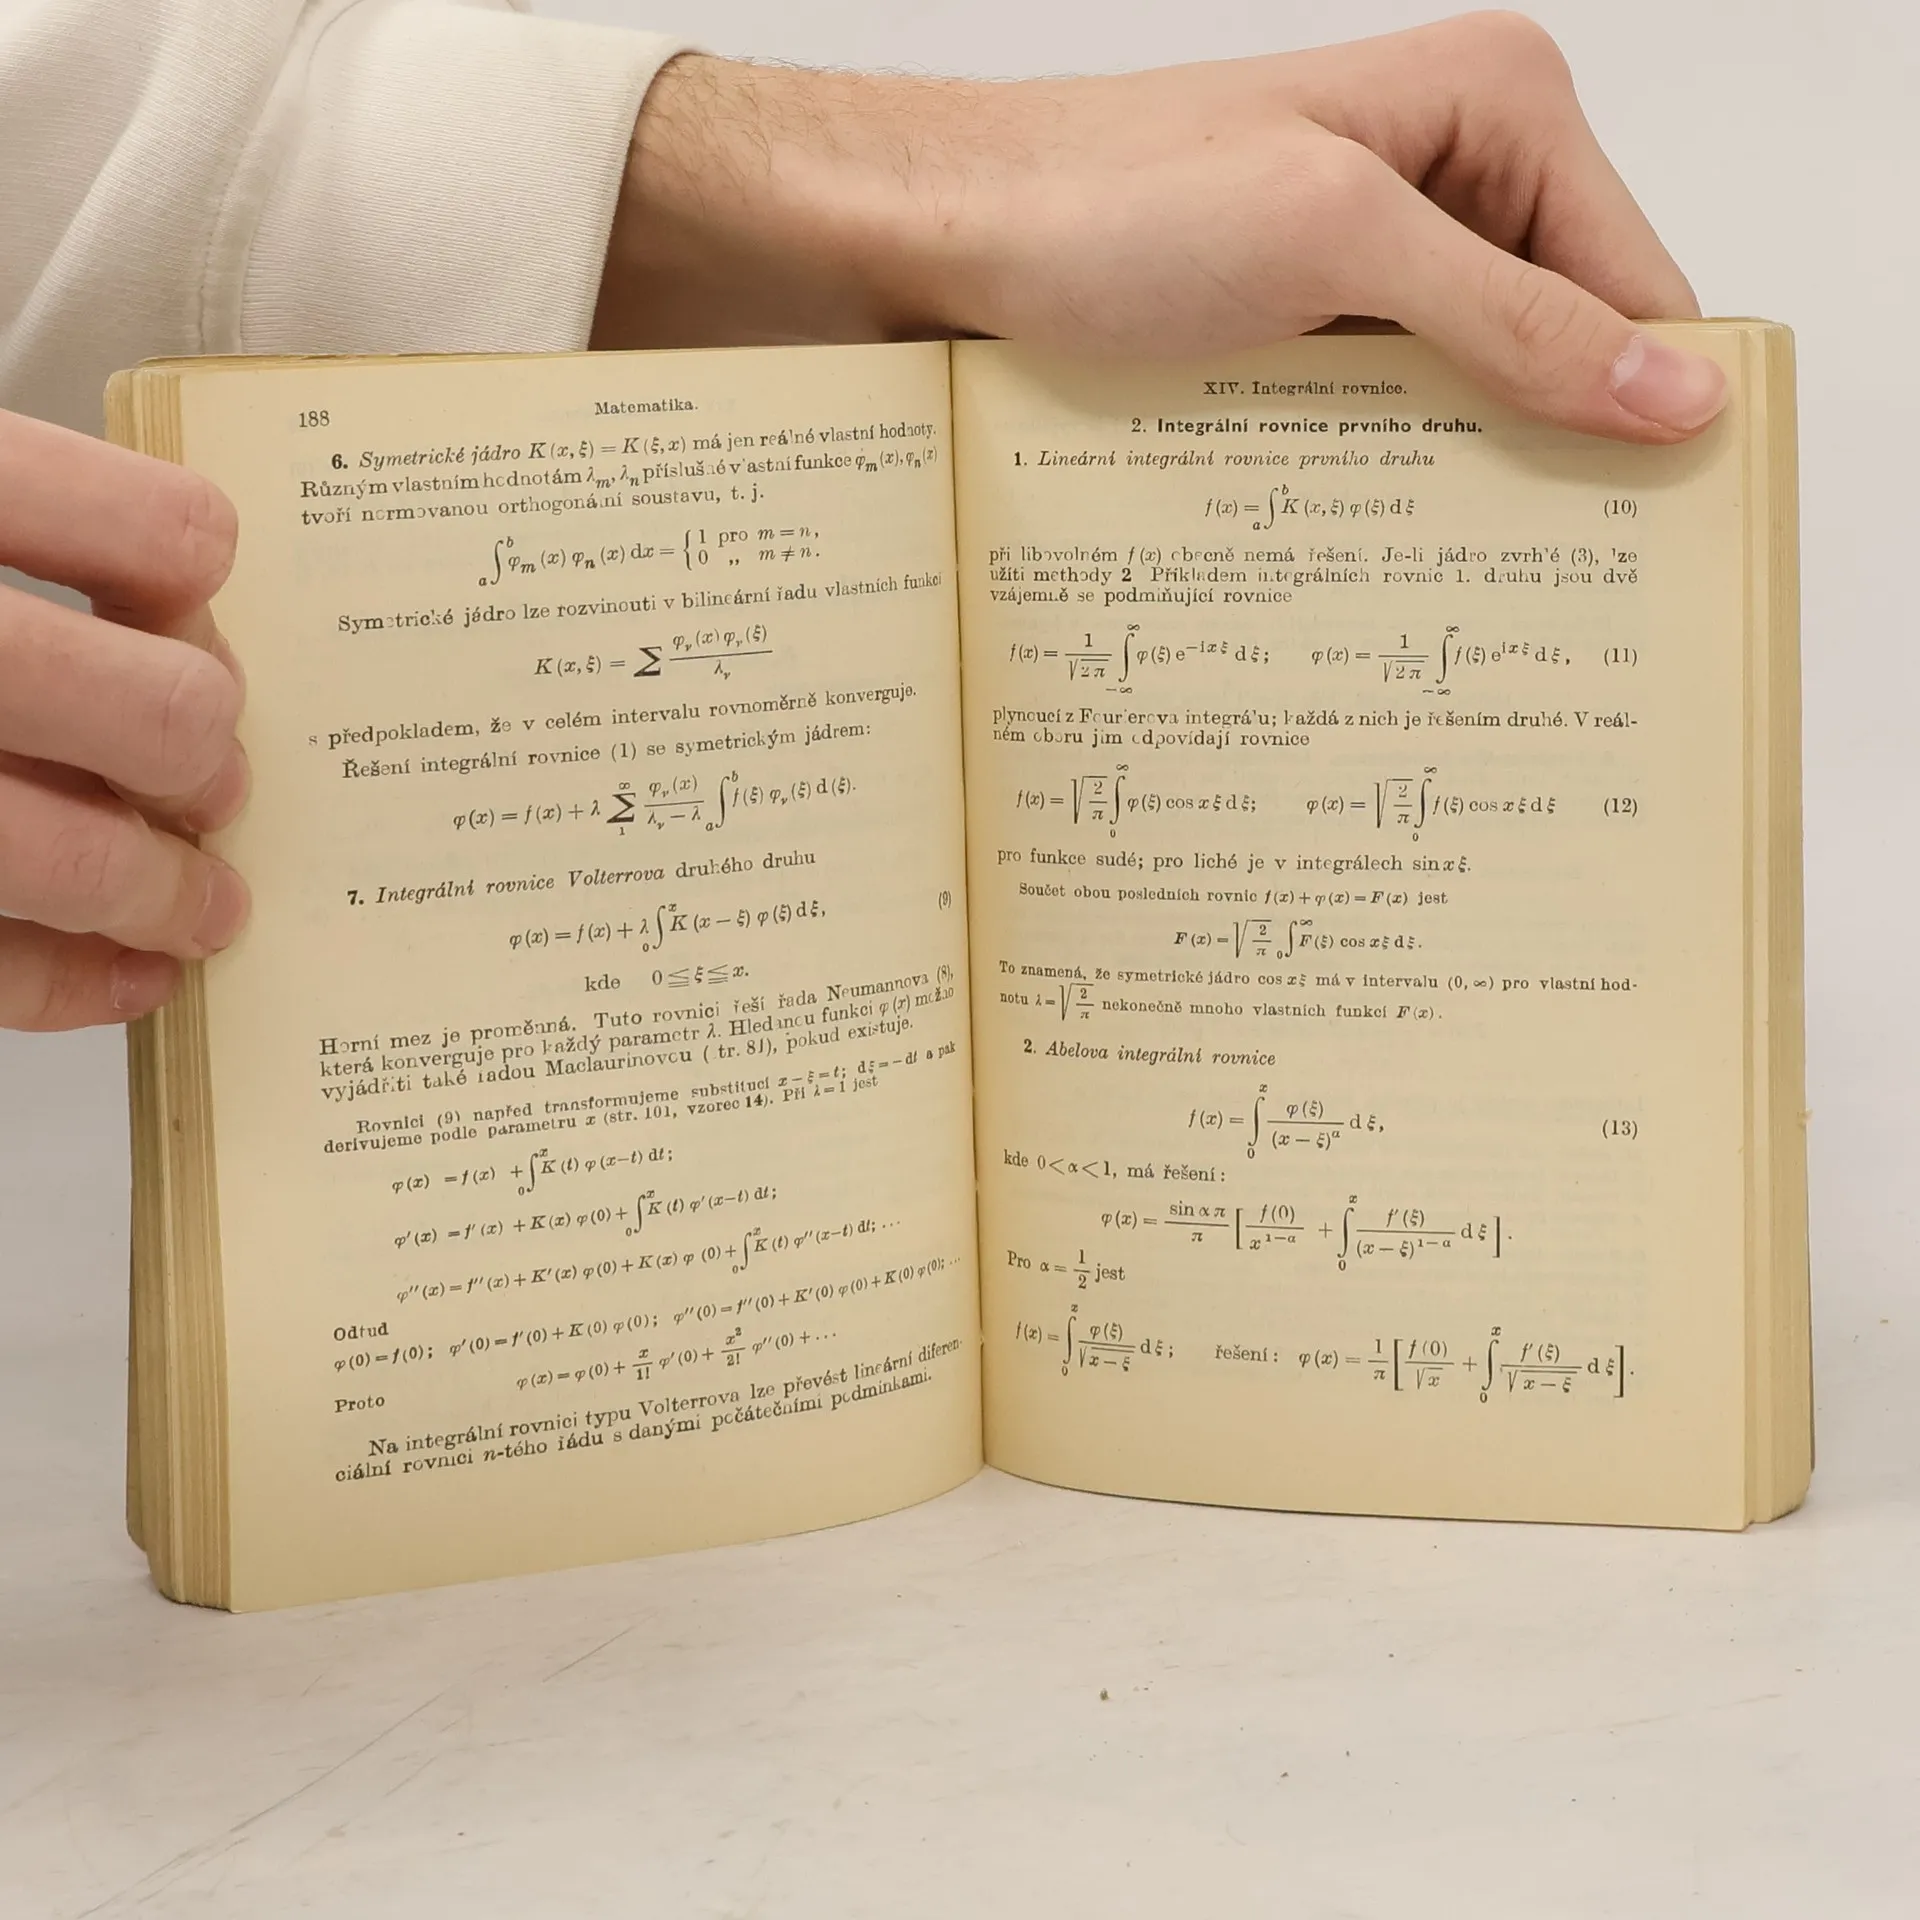 188
Matematika.
6. Symetrické jádro K (x, ξ) = K (ξ, x) má jen reálné vlastní hodnoty.
Různým vlastním hodnotám λₘ, λₙ příslušné vlastní funkce φₘ (x), φₙ (x)
tvoří normovanou orthogonální soustavu, t. j.
∫ₐᵇ φₘ (x) φₙ (x) dx = { 1 pro m = n,
0 „ m ≠ n.
Symetrické jádro lze rozvinouti v bilineární řadu vlastních funkcí
K (x, ξ) = ∑ φᵥ (x) φᵥ (ξ) / λᵥ
s předpokladem, že v celém intervalu rovnoměrně konverguje.
Řešení integrální rovnice (1) se symetrickým jádrem:
φ (x) = f (x) + λ ∑₁^∞ φᵥ (x) / (λᵥ − λ) ∫ₐᵇ f (ξ) φᵥ (ξ) d (ξ).
7. Integrální rovnice Volterrova druhého druhu
φ (x) = f (x) + λ ∫₀ˣ K (x − ξ) φ (ξ) d ξ, (9)
kde 0 ≦ ξ ≦ x.
Horní mez je proměnná. Tuto rovnici řeší řada Neumannova (8),
která konverguje pro každý parametr λ. Hledanou funkci φ (x) možno
vyjádřiti také řadou Maclaurinovou (str. 81), pokud existuje.
Rovnici (9) napřed transformujeme substitucí x − ξ = t; dξ = − dt a pak
derivujeme podle parametru x (str. 101, vzorec 14). Při λ = 1 jest
φ (x) = f (x) + ∫₀ˣ K (t) φ (x−t) dt;
φ′ (x) = f′ (x) + K (x) φ (0) + ∫₀ˣ K (t) φ′ (x−t) dt;
φ″ (x) = f″ (x) + K′ (x) φ (0) + K (x) φ (0) + ∫₀ˣ K (t) φ″ (x−t) dt; ...
Odtud
φ (0) = f (0); φ′ (0) = f′ (0) + K (0) φ (0); φ″ (0) = f″ (0) + K′ (0) φ (0) + K (0) φ (0); ...
φ (x) = φ (0) + x/1! φ′ (0) + x²/2! φ″ (0) + ...
Proto
Na integrální rovnici typu Volterrova lze převést lineární diferen-
ciální rovnici n-tého řádu s danými počátečními podmínkami.
XIV. Integrální rovnice.
2. Integrální rovnice prvního druhu.
1. Lineární integrální rovnice prvního druhu
f (x) = ∫ₐᵇ K (x, ξ) φ (ξ) d ξ (10)
při libovolném f (x) obecně nemá řešení. Je-li jádro zvrhlé (3), lze
užíti methody 2 Příkladem integrálních rovnic 1. druhu jsou dvě
vzájemně se podmiňující rovnice
f (x) = 1/√(2 π) ∫₋∞^∞ φ (ξ) e^(−ixξ) d ξ; φ (x) = 1/√(2 π) ∫₋∞^∞ f (ξ) e^(ixξ) d ξ, (11)
plynoucí z Fourierova integrálu; každá z nich je řešením druhé. V reál-
ném oboru jim odpovídají rovnice
f (x) = √(2/π) ∫₀^∞ φ (ξ) cos x ξ d ξ; φ (x) = √(2/π) ∫₀^∞ f (ξ) cos x ξ d ξ (12)
pro funkce sudé; pro liché je v integrálech sin x ξ.
Součet obou posledních rovnic f (x) + φ (x) = F (x) jest
F (x) = √(2/π) ∫₀^∞ F (ξ) cos xξ d ξ.
To znamená, že symetrické jádro cos xξ má v intervalu (0, ∞) pro vlastní hod-
notu λ = √(2/π) nekonečně mnoho vlastních funkcí F (x).
2. Abelova integrální rovnice
f (x) = ∫₀ˣ φ (ξ) / (x − ξ)^α d ξ, (13)
kde 0 < α < 1, má řešení:
φ (x) = sin α π / π [ f (0) / x^(1−α) + ∫₀ˣ f′ (ξ) / (x − ξ)^(1−α) d ξ ].
Pro α = 1/2 jest
f (x) = ∫₀ˣ φ (ξ) / √(x − ξ) d ξ; řešení: φ (x) = 1/π [ f (0) / √x + ∫₀ˣ f′ (ξ) / √(x − ξ) d ξ ].